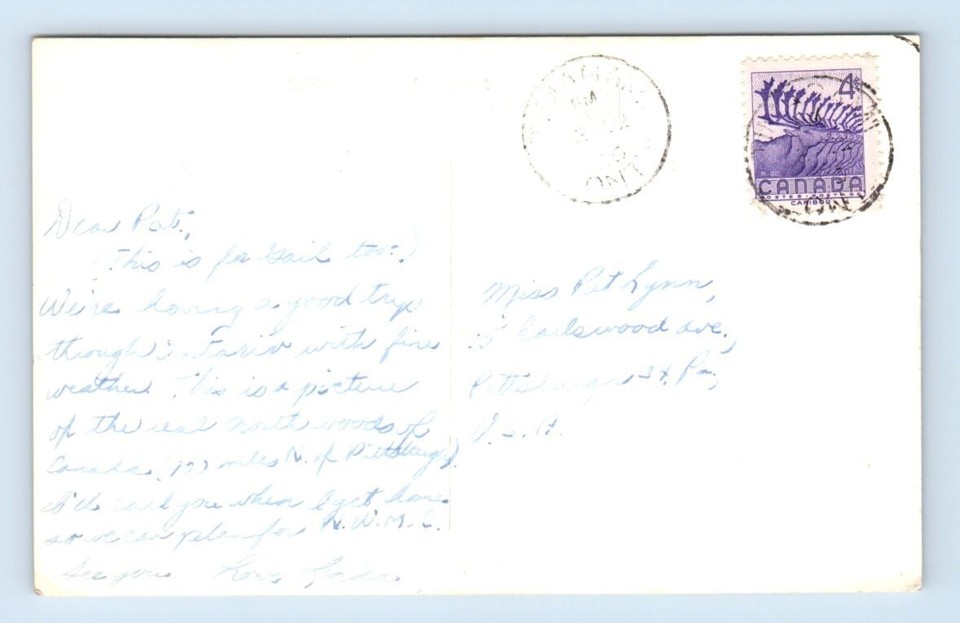 Dear Pat,
(This is for Gail too.)
We're having a good trip
through Ontario with fine
weather. This is a picture
of the real North woods of
Canada. miles N. of Pittsburgh).
I'll call you when I get home
so we can plan for N.W.M.C.
See you Love
ONT
4
CANADA
POSTES POSTAGE
CARIBOU
Miss Pat Lynn,
ave.,
Pittsburgh 34, Pa.,
U.S.A.